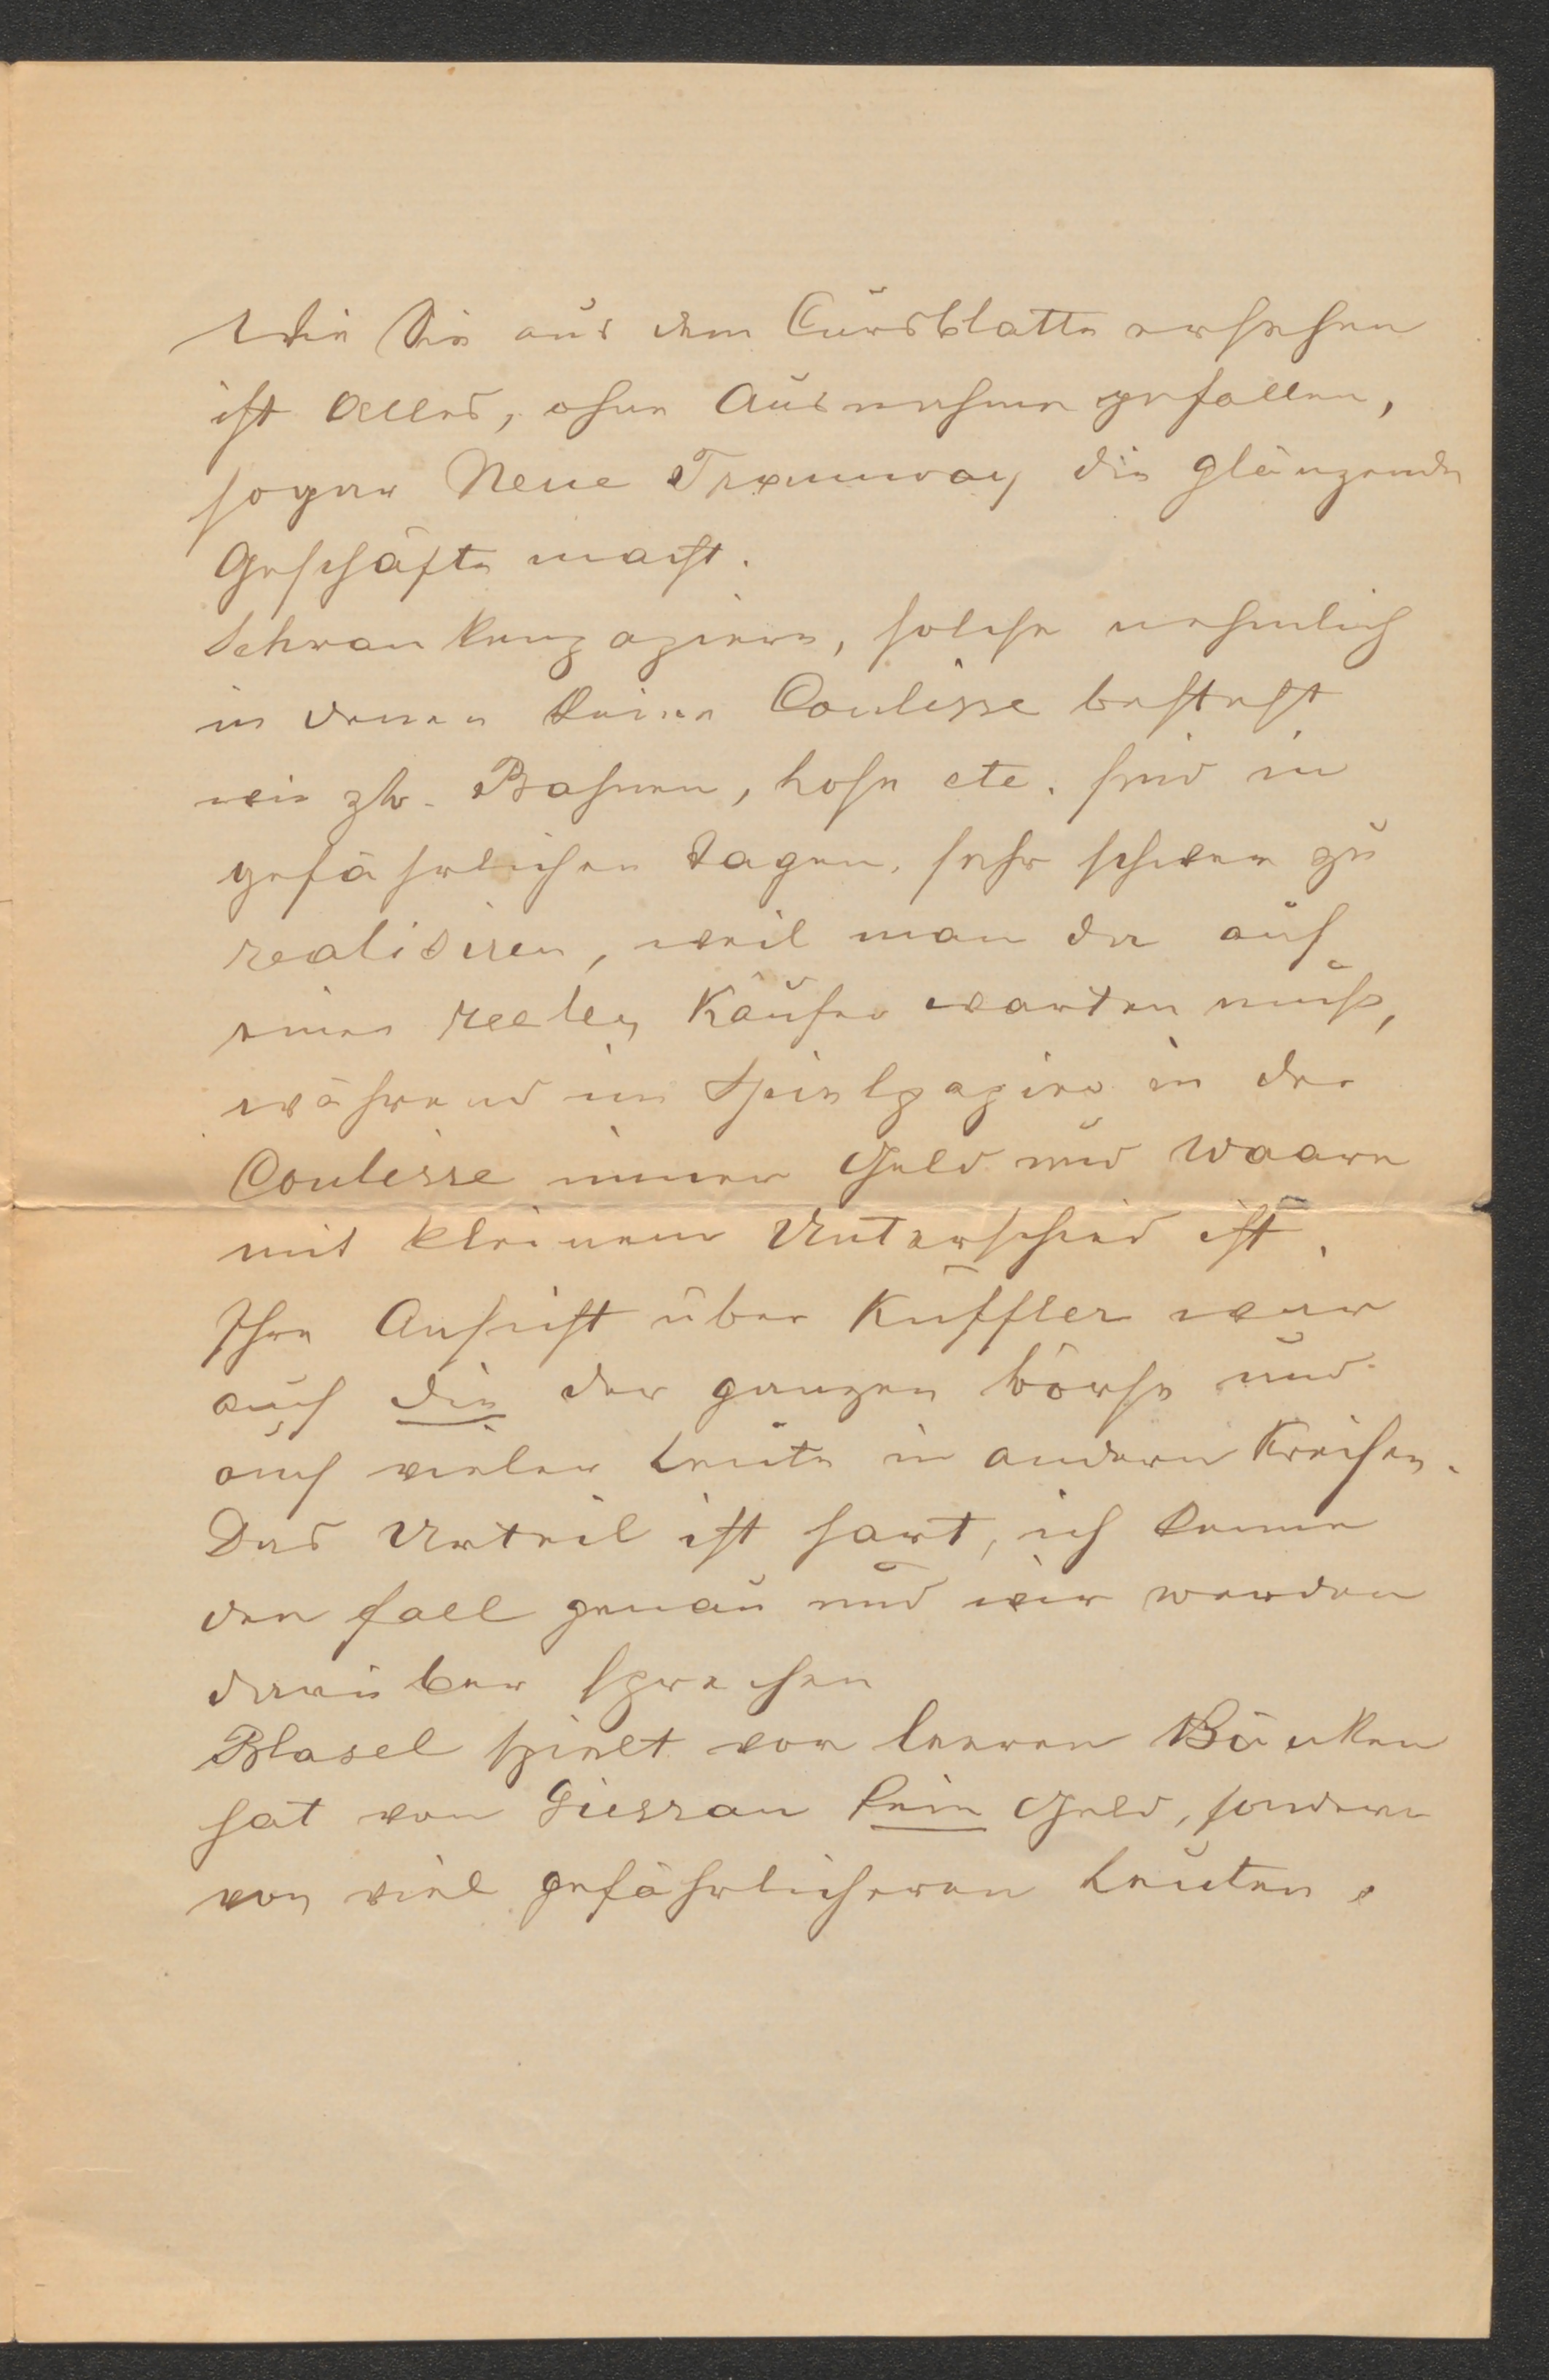 Wie Sie aus dem Cursblatte ersehen
ist Alles, ohne Ausnahme gefallen,
sogar Neue Tramway die glänzende
Geschäfte macht.
Schrankenpapiere, solche nehmlich
in denen keine Coulisse besteht
wie zb. Bahnen, Lose etc. sind in
gefährlichen Tagen, sehr schwer zu
realisiren, weil man da auf
einen reelen Käufer warten muß,
während im Spielpapier in der
Coulisse immer Geld und Waare
mit kleinem Unterschied ist.
Ihre Ansicht über Kuffler war
auch die der ganzen Börse und
auch vieler Leute in andern Kreisen.
Das Urteil ist hart, ich kenne
den Fall genau und wir werden
darüber sprechen
Blasel spielt vor leeren Bänken
hat von kein Geld, sondern
von viel gefährlicheren Leuten.